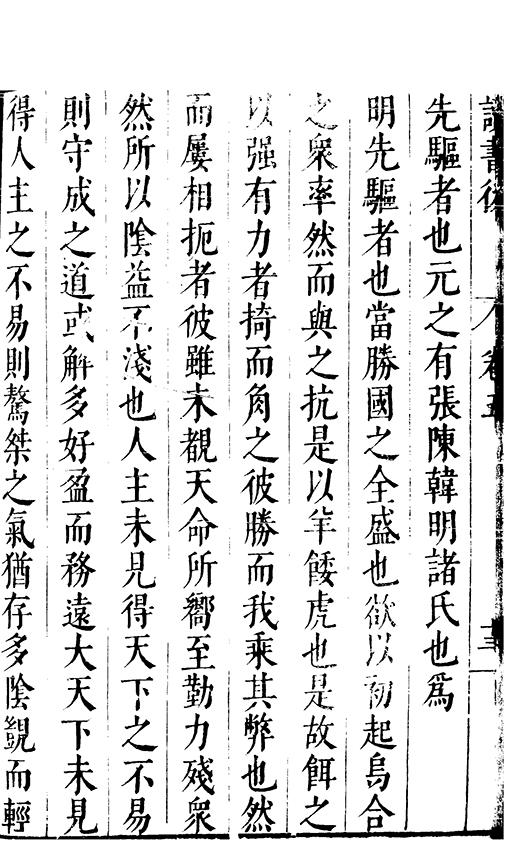 讀書後
卷五
先驅者也元之有張陳韓明諸氏也爲
明先驅者也當勝國之全盛也欲以初起烏合
之衆率然而與之抗是以羊餧虎也是故餌之
以强有力者掎而角之彼勝而我乘其弊也然
而屢相扼者彼雖未覩天命所嚮至勤力殘衆
然所以陰益不淺也人主未見得天下之不易
則守成之道或解多好盈而務遠大天下未見
得人主之不易則驁桀之氣猶存多陰覬而輕